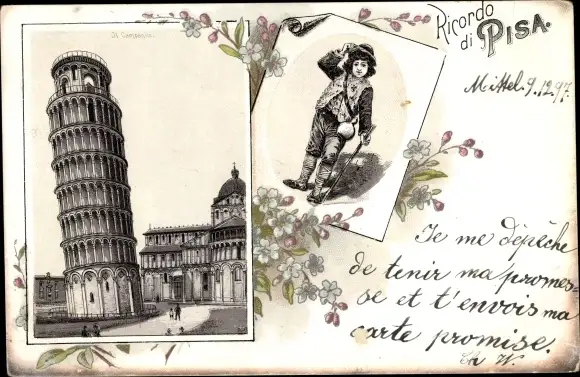 Il Campanile
Ricordo
di PISA.
Mittel. 9.12.97.
Je me dépêche
de tenir ma promes-
se et t'envois ma
carte promise.
Ch W.